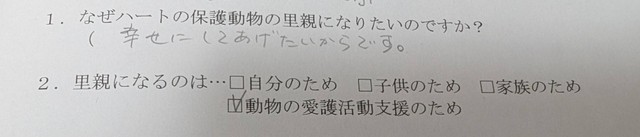 1．なぜハートの保護動物の里親になりたいのですか？
（ 幸せにしてあげたいからです。
2．里親になるのは…□自分のため □子供のため □家族のため
☑動物の愛護活動支援のため